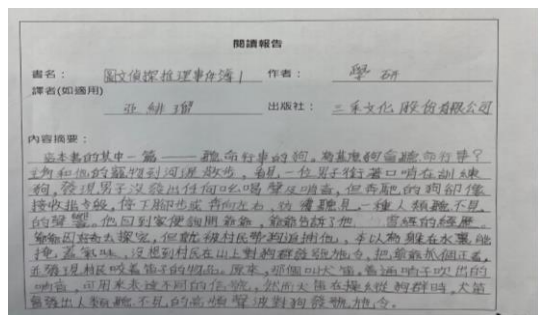 閱讀報告
書名： 圖文偵探推理事件簿1 作者： 學研
譯者(如適用)
張緋瑠 出版社： 三采文化股份有限公司
內容摘要：
這本書的其中一篇——聽命行事的狗。為甚麼狗會聽命行事？
主角和他的寵物到河邊散步，看見一位男子銜著口哨在訓練
狗，發現男子沒發出任何吆喝聲及哨音，但奔跑的狗卻像
接收指令般，停下腳步或轉向左右，彷彿聽見一種人類聽不見
的聲響。他回到家便詢問爺爺，爺爺告訴了他 曾經的經歷。
爺爺因好奇去探究，但就被村民帶狗追捕他，本以為躲在水裏能
掩蓋氣味，沒想到村民在山上對狗群發號施令，把爺爺抓個正着，
並發現村民咬着笛子的物品。原來，那個叫犬笛，普通哨子吹出的
哨音，可用來表達不同的信號，然而犬笛在操縱狗群時，犬笛
會發出人類聽不見的高頻聲波對狗發號施令。